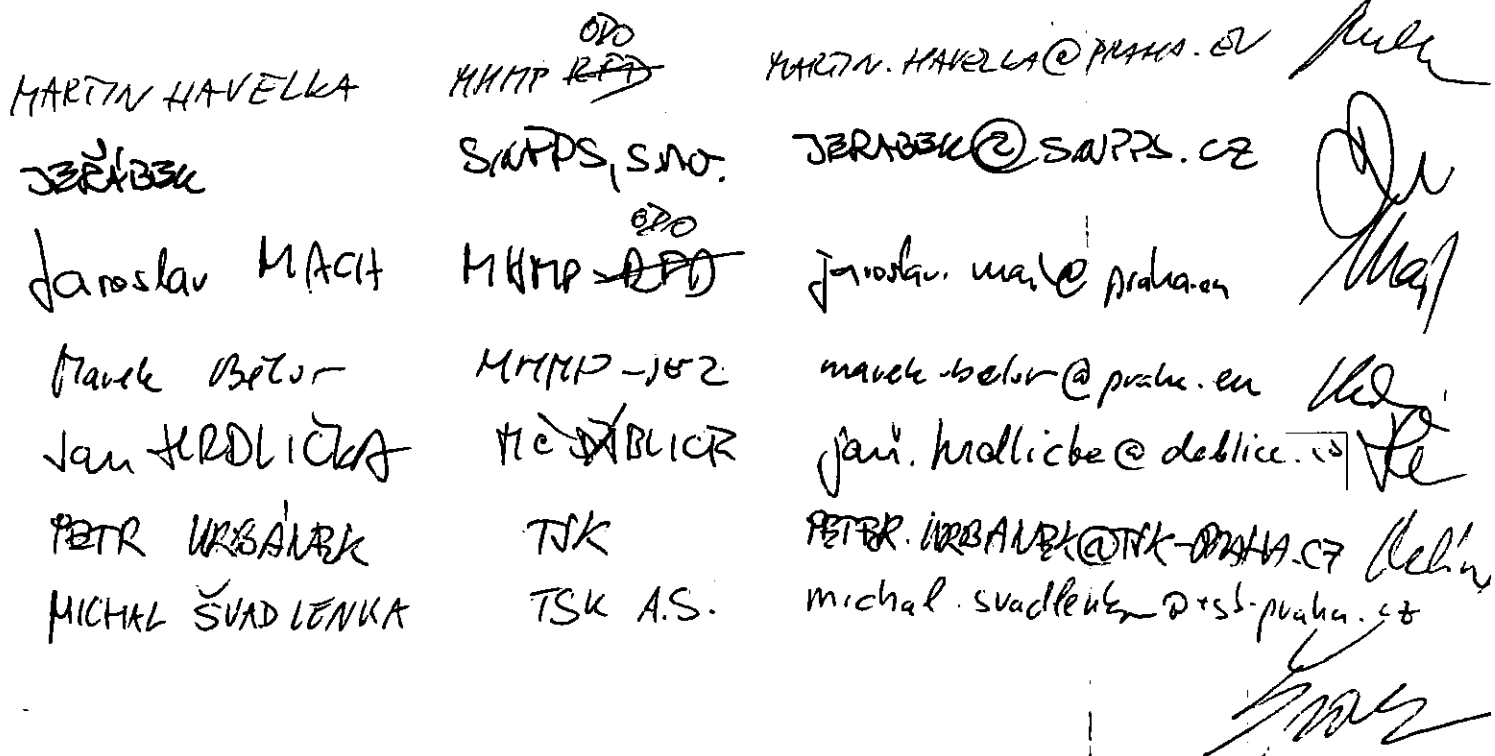 MARTIN HAVELKA MHMP ODO MARTIN.HAVELKA@PRAHA.EU
JEŘÁBEK SINPPS, s.r.o. JERABEK@SINPPS.CZ
Jaroslav MACH MHMP ODO jaroslav.mach@praha.eu
Marek Bělor MHMP marek.belor@praha.eu
Jan HRDLIČKA MČ ĎÁBLICE jan.hrdlicka@dablice.cz
PETR URBÁNEK TSK PETR.URBANEK@TSK-PRAHA.CZ
MICHAL ŠVADLENKA TSK A.S. michal.svadlenka@tsk-praha.cz